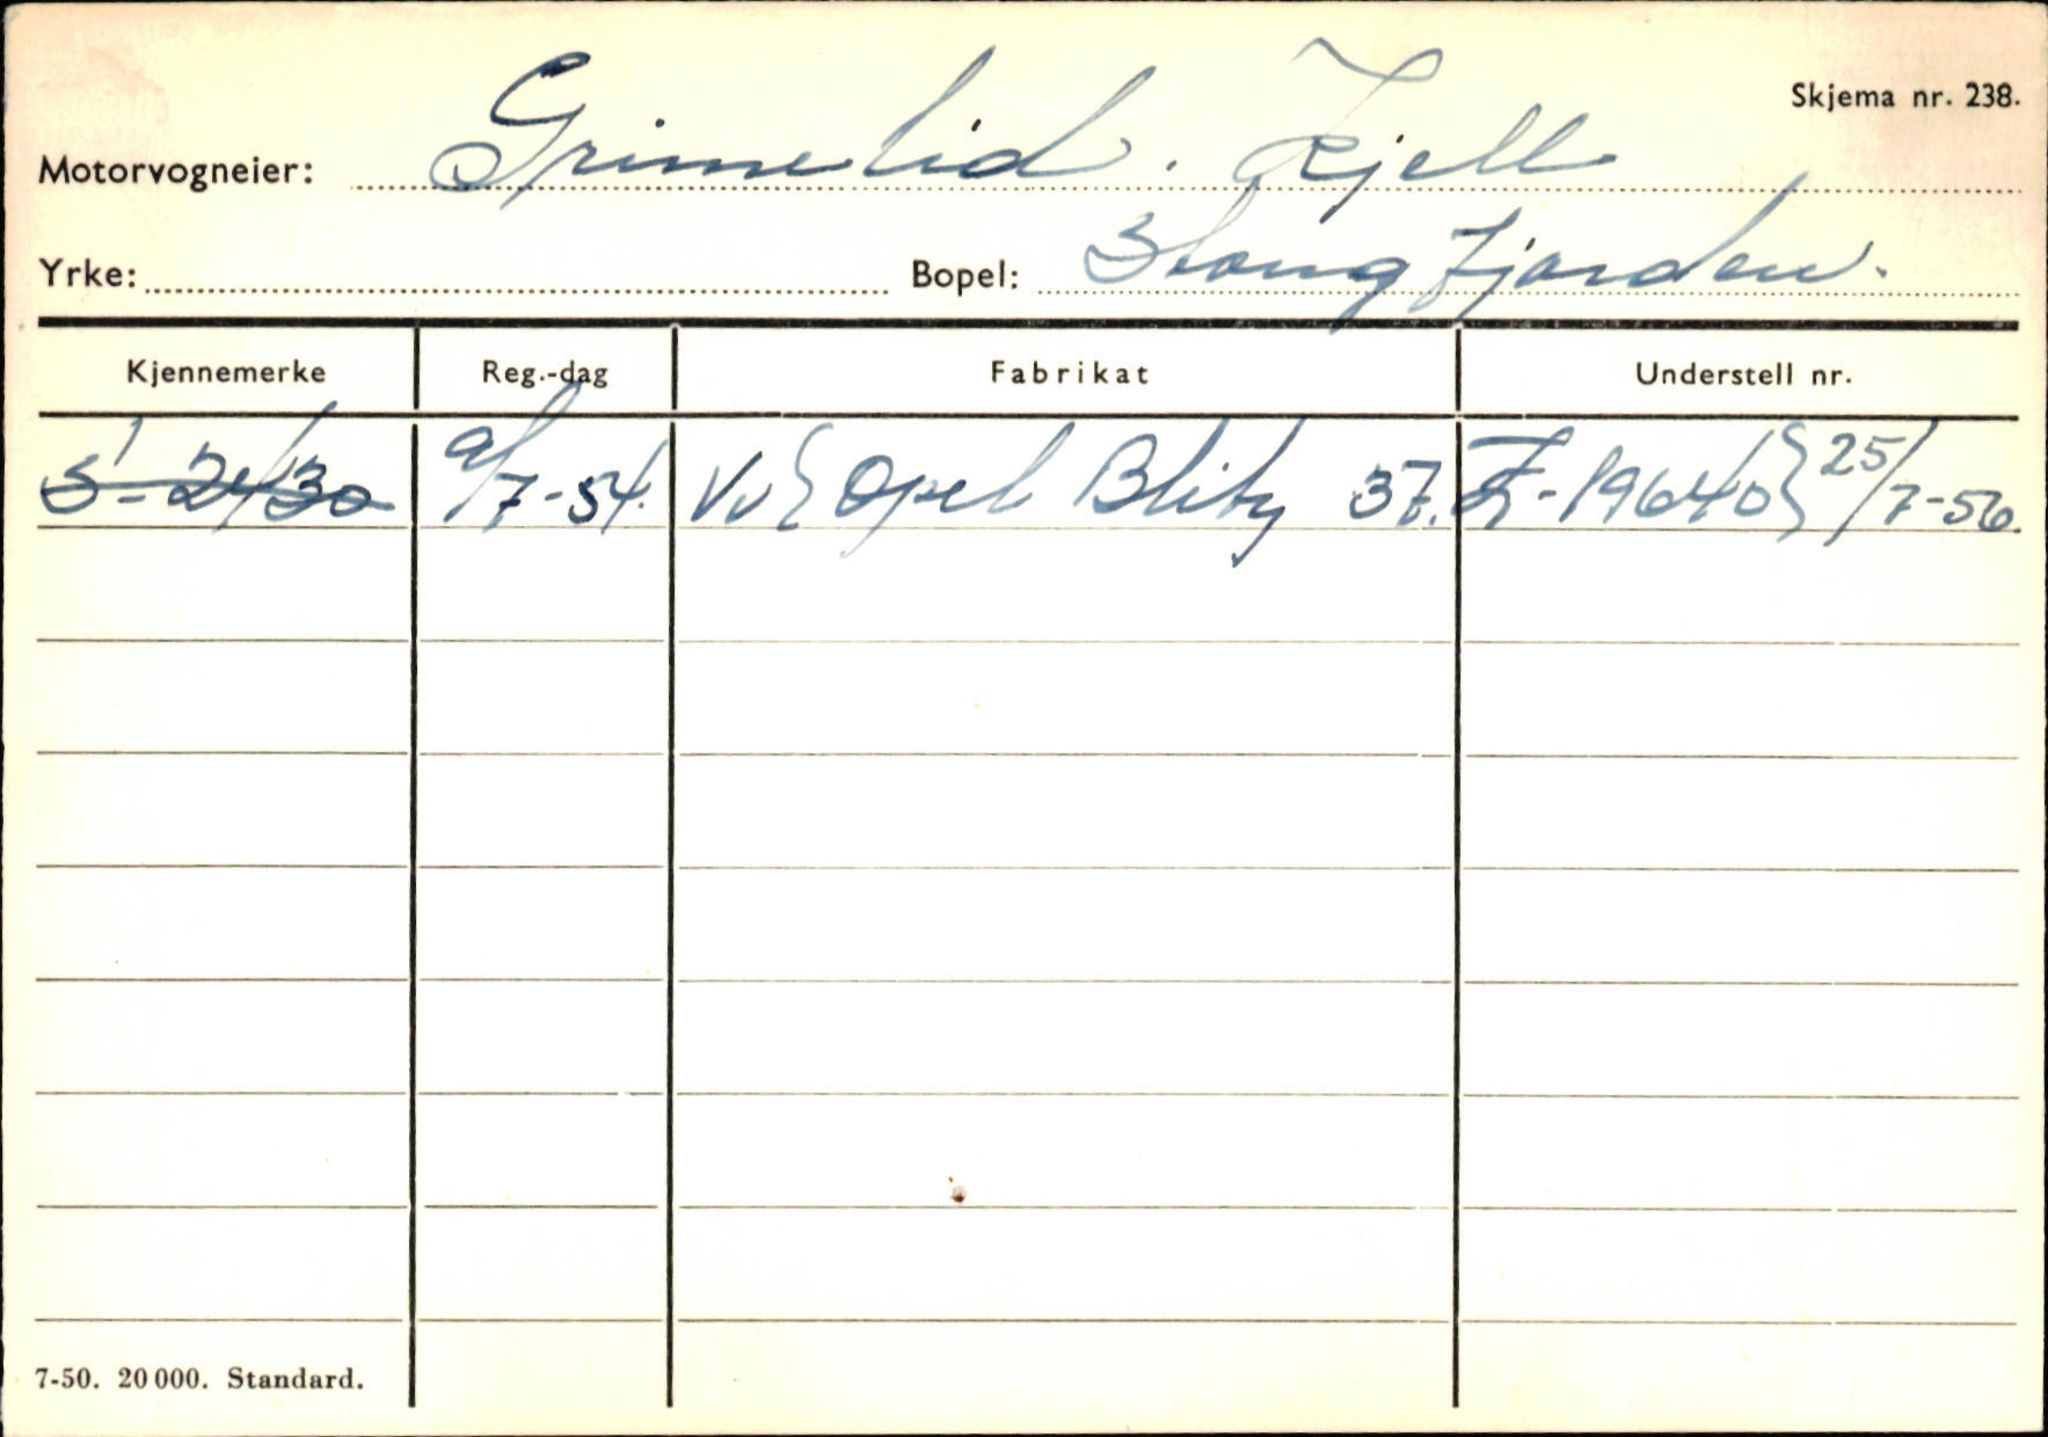 Skjema nr. 238.
Motorvogneier: Grimelid. Kjell
Yrke: Bopel: Stongfjorden.
Kjennemerke Reg.-dag Fabrikat Understell nr.
S-2430 9/7-54. Vv Opel Blitz 37. Z-19640 25/7-56.
7-50. 20 000. Standard.